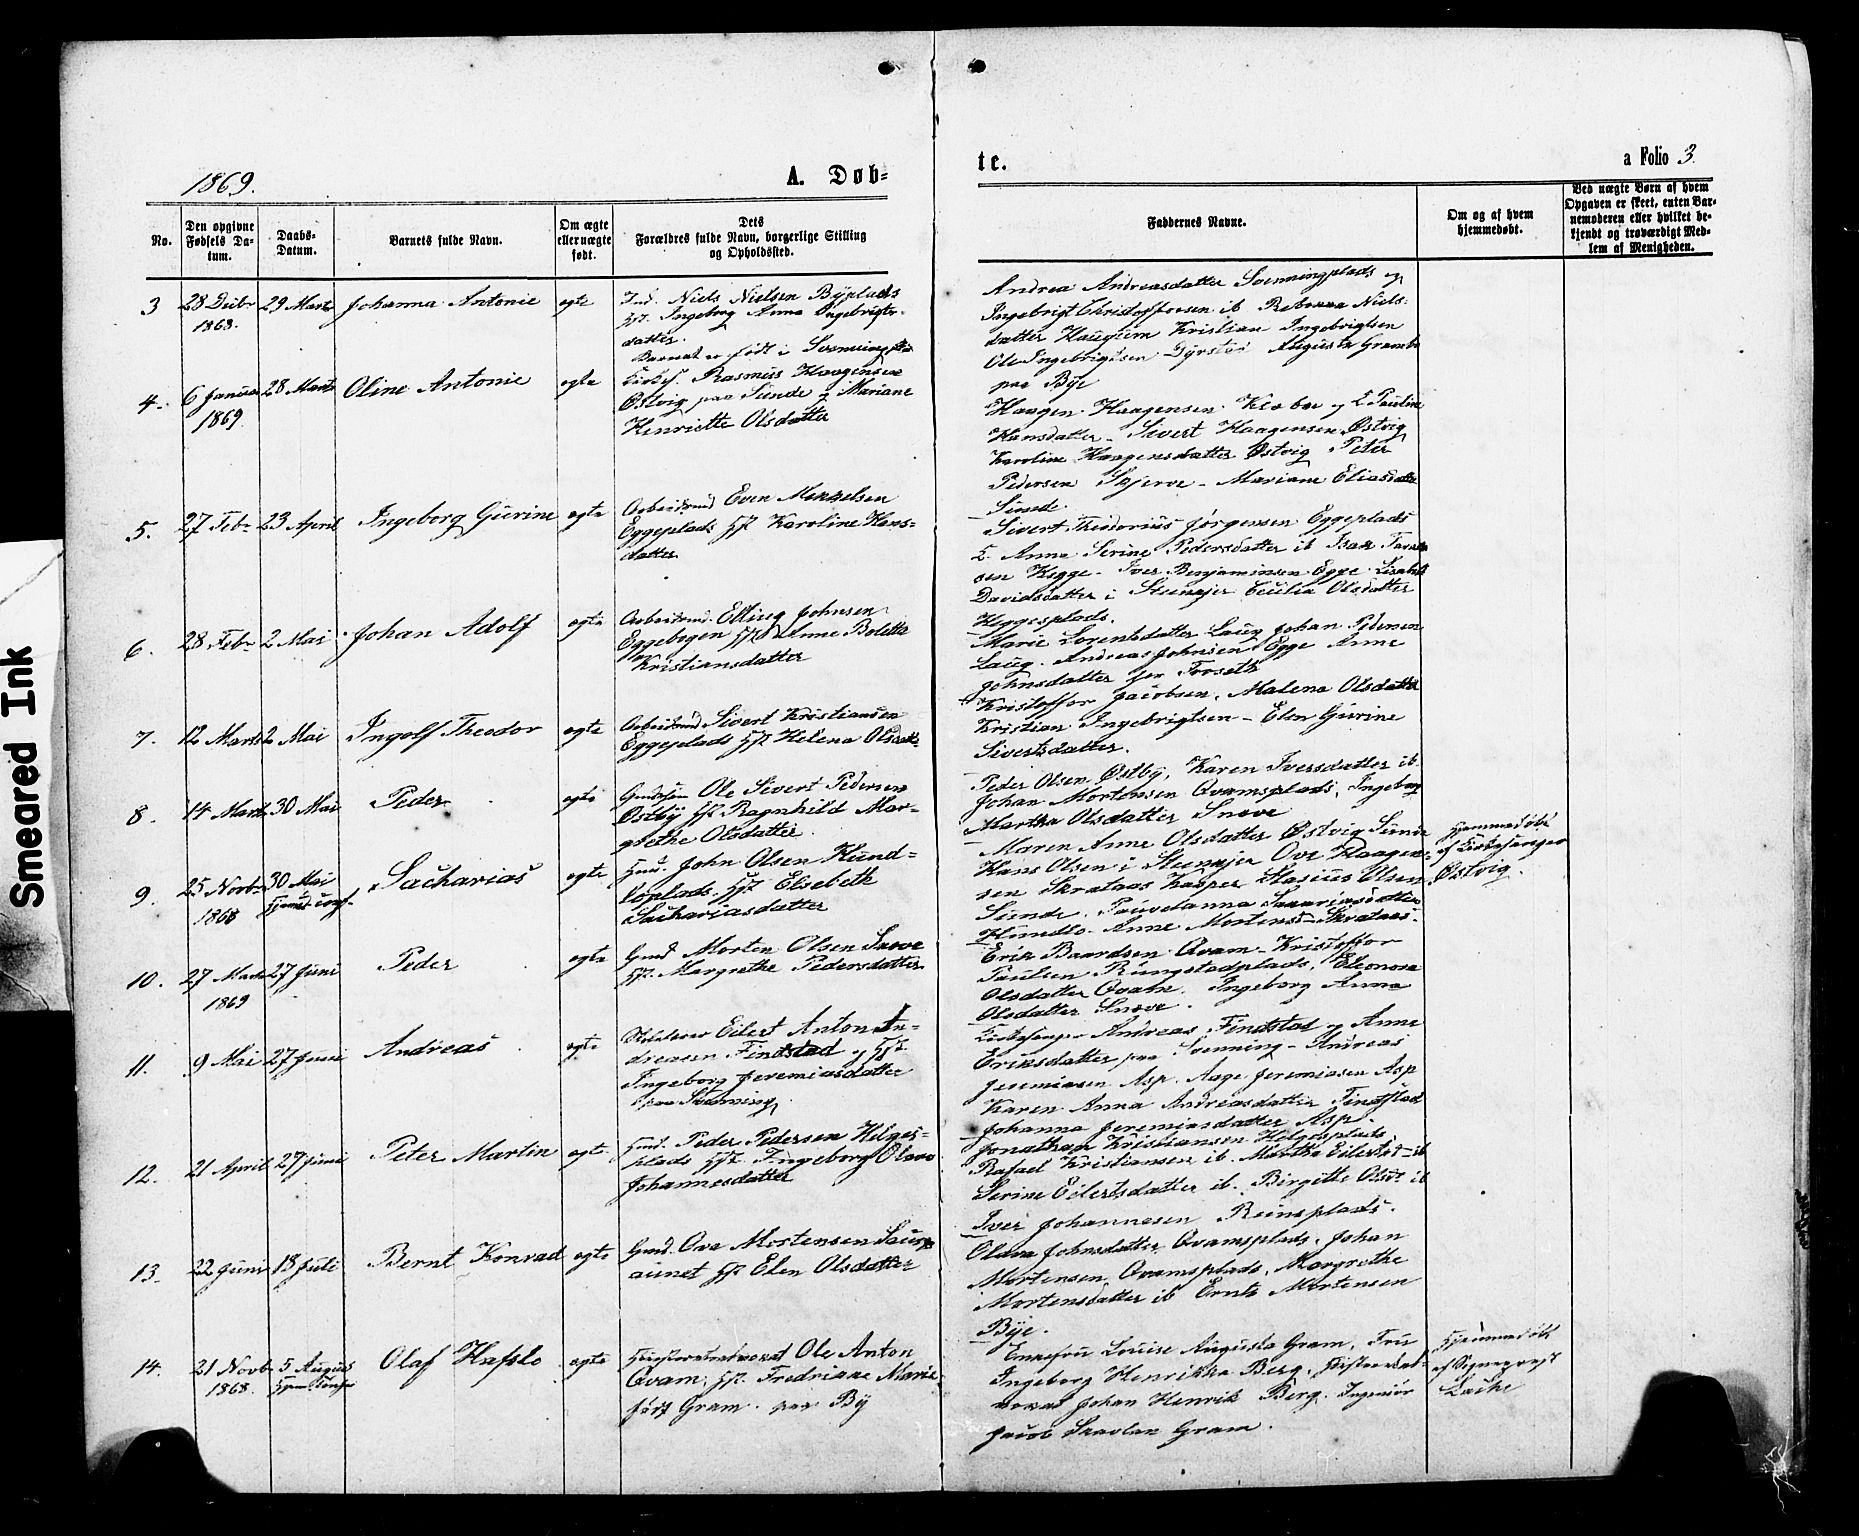 1869.
A. Døb-
te.
a Folio 3.
No.
Den opgivne
Fødsels Da-
tum.
Daabs-
Datum.
Barnets fulde Navn.
Om ægte
eller uægte
født.
Dets
Forældres fulde Navn, borgerlige Stilling
og Opholdssted.
Faddernes Navne.
Om og af hvem
hjemmedøbt.
Ved uægte Børn af hvem
Opgaven er skeet, enten Bar-
nemoderen eller hvilket be-
kjendt og troværdigt Med-
lem af Menigheden.
3
28 Decbr
1868.
29 Marts
Johanna Antonie
ægte
Ind. Niels Nielsen Byplads
Hst. Ingeborg Anna Ingebrigts-
datter.
Barnet er født i
Andrea Andreasdatter Svenningplads og
Ingebrigt Christoffersen ib Rebekka Niels-
datter Haugum Kristian Ingebrigtsen
Ole Ingebrigtsen Augusta Gram
paa Bye
4.
6 Januar
1869
28 Marts
Oline Antonie
ægte
Rasmus Haagensen
Østvig paa Sunde og Mariane
Henriette Olsdatter
Haagen Haagensen og E Pauline
Hansdatter - Sivert Haagensen Østvig
Karoline Haagensdatter Østvig Peter
Pedersen Skjerve - Mariane Eliasdatter
Sunde.
5.
27 Febr
23 April
Ingeborg Gurine
ægte
Arbeidsmd Even Mikkelsen
Eggeplads Hst Karoline Hans-
datter
Sivert Theodorius Jørgensen Eggeplads
E. Anna Serine Pedersdatter ib Isak
sen Hegge - Iver Benjaminsen Egge
Davidsdatter i Steinkjer Cecilia Olsdatter
Heggesplads.
6.
28 Febr
2 Mai
Johan Adolf
ægte
Arbeidsmd. Elling Johnsen
Eggebogen Hst Anne Boletta
Kristiansdatter
Marie Lorentsdatter Laug Johan Pedersen
Laug. Andreas Johnsen Egge Anne
Johnsdatter Forseth
7.
12 Marts
2 Mai
Ingolf Theodor
ægte
Arbeidsmd Sivert Kristiansen
Eggeplads Hst Helena Olsdatt
Kristoffer Jacobsen. Malena Olsdatter
Kristian Ingebrigtsen - Elen Gurine
Sivertsdatter.
8.
14 Marts
30 Mai
Peder
ægte
Ole Sivert Pedersen
Østby Hst Ragnhild Mar-
grethe Olsdatter.
Peder Olsen Østby, Karen Iversdatter ib
Johan Mortensen Qvamsplads, Ingeborg
Martha Olsdatter Snøve
9.
25 Novbr
1868
30 Mai
Sacharias
ægte
Hmd. John Olsen Hund-
loplads Hst. Elsebeth
Sachariasdatter
Maren Anne Olsdatter Østvig Sunde
Hans Olsen i Steinkjer Ove Haagen-
sen Skrataas Kasper Stasius Olsen
Sunde. Paulanna Sakariasdatter
Hundlo - Anne Mortensd - Skrataas.
Hjemmedøbt
af Kirkesanger
Østvig.
10.
27 Marts
1869
27 Juni
Peder
ægte
Gmd Morten Olsen Snøve
Hst. Margrethe Pedersdatter
Erik Baardsen Qvam - Kristoffer
Paulsen Rungstadplads. Eleonora
Olsdatter Qvam. Ingeborg Anna
Olsdatter Snøve.
11.
9 Mai
27 Juni
Andreas
ægte
Eilert Anton An-
dreasen Findstad og Hst.
Ingeborg Jeremiasdatter
paa Svenning
Kirkesanger Andreas Findstad og Anne
Eriksdatter paa Svenning - Andreas
Jeremiasen Asp. Aage Jeremiasen Asp
Karen Anna Andreasdatter Findstad
Johanna Jeremiasdatter Asp.
12.
21 April
27 Juni
Peter Martin
ægte
Hmd. Peder Pedersen Helges-
plads Hst Ingeborg Olava
Johannesdatter
Jonathan Kristiansen Helgesplads
Rafael Kristiansen ib. Martha Eilertsd - ib
Serine Eilertsdatter ib. Birgitte Olsdr ib
Iver Johannesen Reinsplads.
13.
22 Juni
18 Juli
Bernt Konrad
ægte
Gmd. Ove Mortensen
aunet Hst Elen Olsdatter
Olava Johnsdatter Qvamsplads. Johan
Mortensen Qvamsplads, Margrethe
Mortensdatter ib Ernts Mortensen
Bye.
14.
21 Novb
1868.
5 August
Olaf Hafslo
ægte
Ole Anton
Qvam. Hst. Fredrikke Marie
født Gram. paa By
Enkefru Louise Augusta Gram, Fru
Ingeborg Henrikka Berg,
Johan Henrik Berg. Ingeniør
Jacob Skavlan Gram.
Hjemmedøbt
af Sogneprest
Lache
Smeared Ink